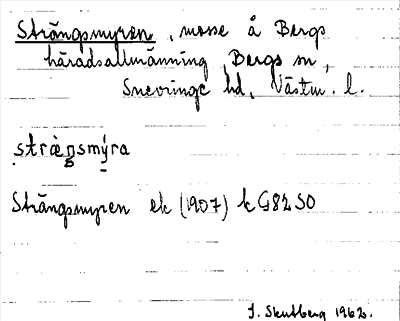 Strängsmyren, mosse å Bergs
häradsallmänning, Bergs sn,
Snevringe hd, Västm. l.
strǽŋsmýra
Strängsmyren ek (1907) k G82 SO
J. Skutberg 1962.